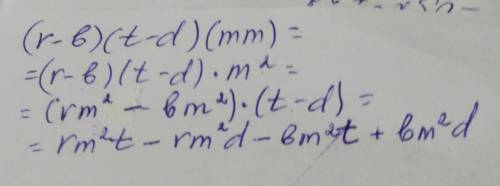 (r-b)(t-d)(mm)=
=(r-b)(t-d)·m²=
=(rm²-bm²)·(t-d)=
=rm²t-rm²d-bm²t+bm²d